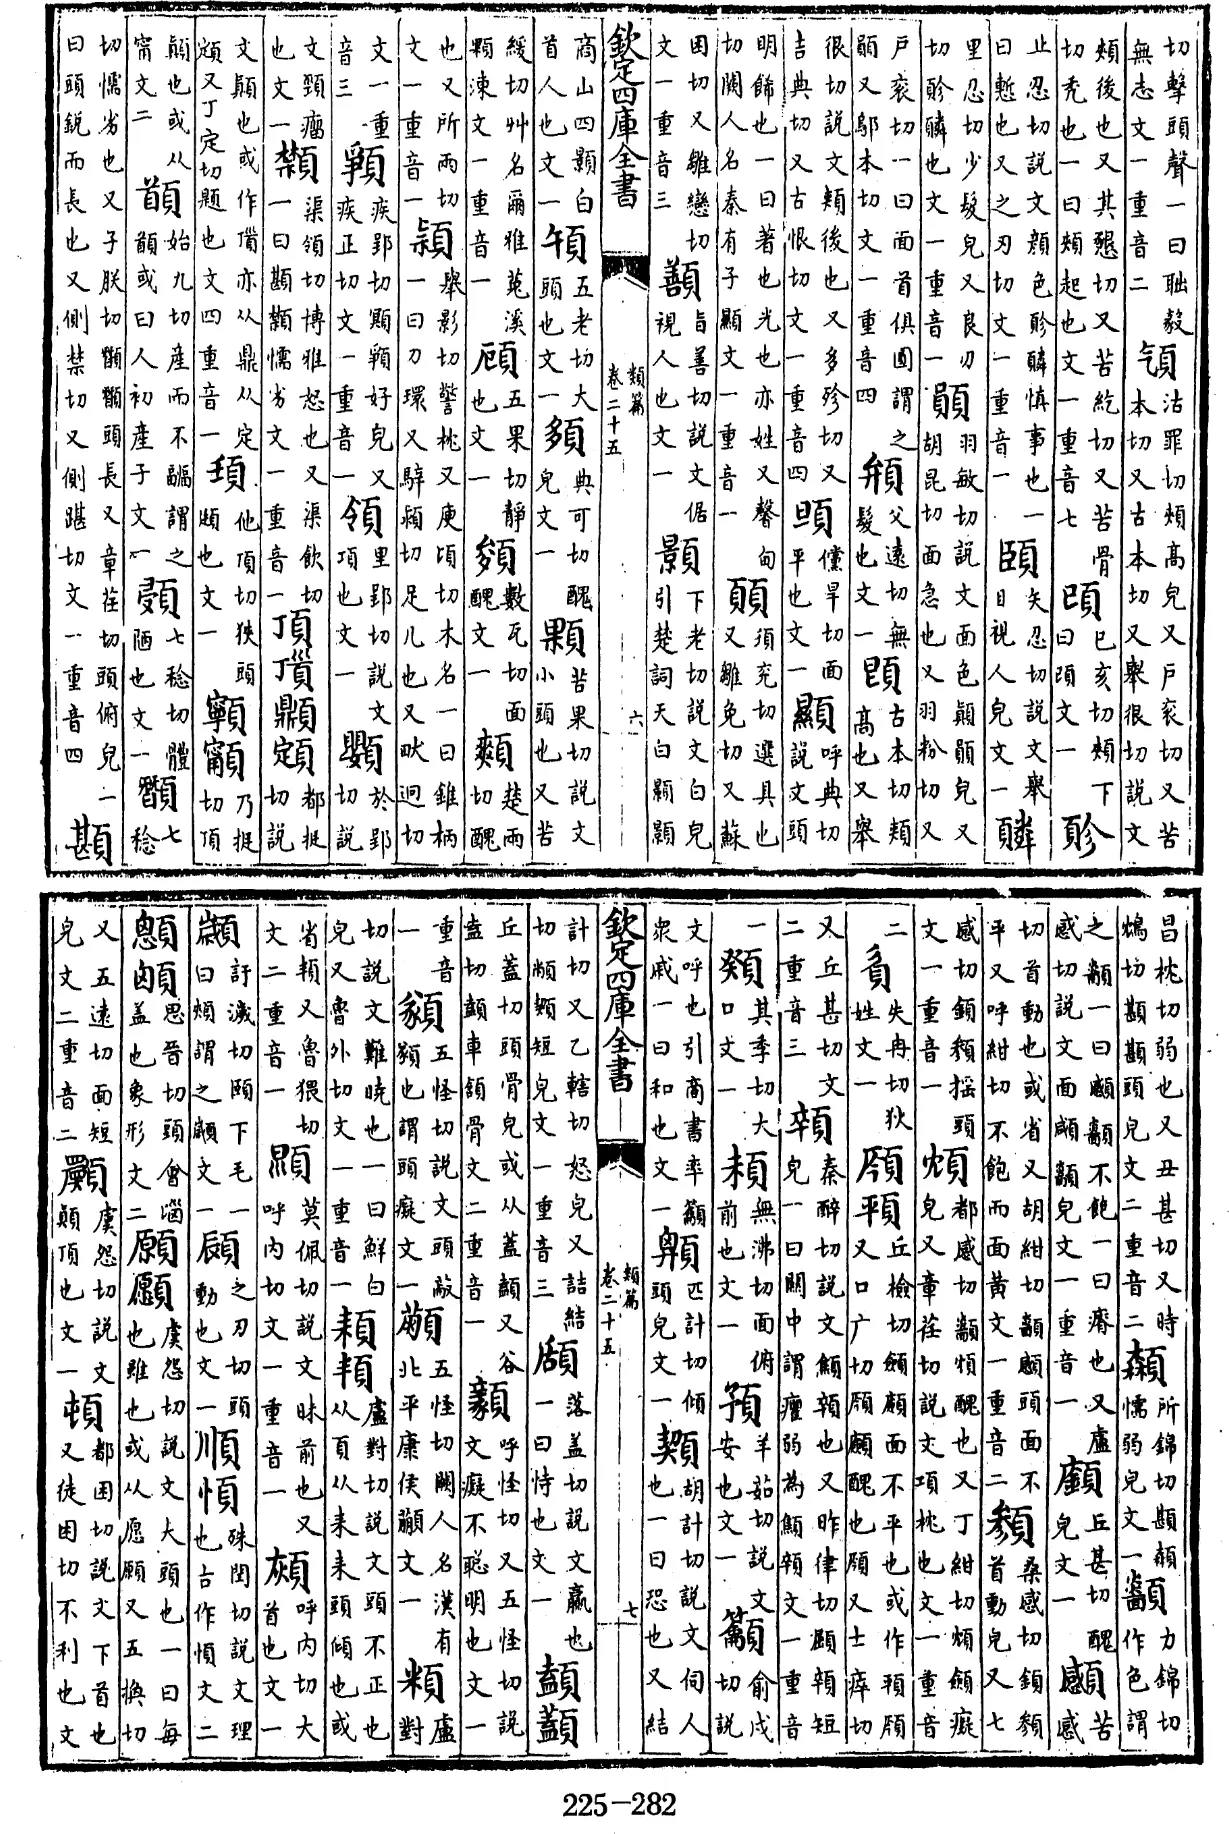 切擊頭聲一曰聉
無志文一重音二
沽罪切頰高皃又戶衮切又苦
本切又古本切又舉很切說文
頰後也又其懇切又苦紇切又苦骨
切禿也一曰頰起也文一重音七
巳亥切頰下
曰頤文一
止忍切說文顏色慎事也一
曰慙也又之刃切文一重音一
矢忍切說文舉
目視人皃文一
里忍切少髮皃又良刃
切也文一重音一
羽敏切說文面色顚皃又
胡昆切面急也又羽粉切又
戶衮切一曰面首俱圎謂之
又鄔本切文一重音四
父遠切無
髮也文一
古本切頪
高也又舉
很切說文頰後也又多殄切又
吉典切又古恨切文一重音四
儻旱切面
平也文一
顯
呼典切
說文頭
明飾也一曰著也光也亦姓又馨甸
切闕人名秦有子顯文一重音一
須兖切選具也
又雛免切又蘇
困切又雛戀切
文一重音三
旨善切說文倨
視人也文一
顥
下老切說文白皃
引楚詞天白顥顥
欽定四庫全書
類篇
卷二十五
六
商山四顥白
首人也文一
五老切大
頭也文一
典可切醜
皃文一
顆
苦果切說文
小頭也又苦
緩切艸名爾雅菟溪
顆涷文一重音一
五果切靜
也文一
數瓦切面
醜文一
楚兩
切醜
也又所兩切
文一重音一
舉影切警枕又庾頃切木名一曰錐柄
一曰刀環又騂切足几也又畎迥切
文一重
音三
疾郢切好皃又
疾正切文一重音一
領
里郢切說文
項也文一
於郢
切說
文頸瘤
也文一
渠領切博雅怒也又渠飲切
一曰懦劣文一重音一
頂
都挺
切說
文顚也或作亦从鼎从定
又丁定切題也文四重音一
頲
他頂切狹頭
也文一
乃挺
切頂
顚也或从
甯文二
始九切產而不謂之
或曰人初產子文一
七稔切體
陋也文一
七
稔
切懦劣也又子朕切頭長又章荏切頭俯皃一
曰頭銳而長也又側禁切又側踸切文一重音四
昌枕切弱也又丑甚切又時
鴆坊頭皃文二重音二
所錦切
懦弱皃文一
顲
力錦切
作色謂
之顲一曰顑顲不飽一曰瘠也又盧
感切說文面顑顲皃文一重音一
丘甚切醜
皃文一
顑
苦
感
切首動也或省又胡紺切頭面不
平又呼紺切不飽而面黃文一重音二
桑感切
首動皃又七
感切搖頭
文一重音一
都感切醜也又丁紺切癡
皃又章荏切說文項枕也文一重音
二
失冉切狄
姓文一
丘檢切面不平也或作
又口广切醜也又士瘁切
又丘甚切文
二重音三
顇
秦醉切說文顦顇也又昨律切顇短
皃一曰關中謂癯弱為顦顇文一重音
一
其季切大
口文一
無沸切面俯
前也文一
預
羊茹切說文
安也文一
籲
俞戍
切說
文呼也引商書率籲
衆戚一曰和也文一
匹計切傾
頭皃文一
胡計切說文伺人
也一曰恐也又結
欽定四庫全書
類篇
卷二十五
七
計切又乙轄切怒皃又詰結
切短皃文一重音三
落蓋切說文贏也
一曰恃也文一
丘蓋切頭骨皃或从蓋又谷
盍切車頷骨文二重音一
呼怪切又五怪切說
文癡不聰明也文一
重音
一
五怪切說文頭蔽
也謂頭癡文一
五怪切闕人名漢有
北平康侯文一
纇
盧
對
切說文難曉也一曰鮮白
皃又魯外切文一重音一
頛
盧對切說文頭不正也
从頁从耒耒頭傾也或
省頛又魯猥切
文二重音一
莫佩切說文昧前也又
呼內切文一重音一
呼內切大
首也文一
訏濊切頤下毛一
曰頰謂之文一
之刃切頭
動也文一
順
殊閏切說文理
也古作文二
思晉切頭會
蓋也象形文二
願
虞怨切說文大頭也一曰每
也雖也或从愿願又五換切
又五遠切面短
皃文二重音二
虞怨切說文
顚頂也文一
頓
都困切說文下首也
又徒困切不利也文
225-282